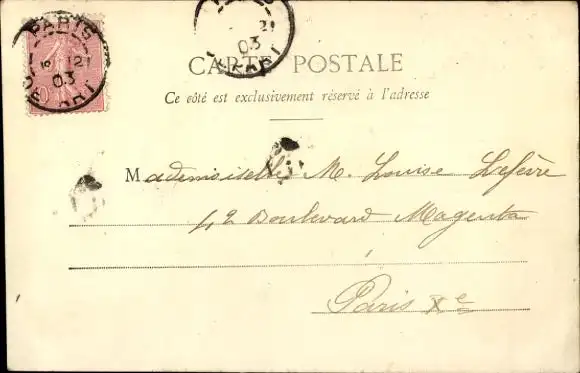 PARIS
12 1
03
DÉPART
21
03
DÉPART
CARTE POSTALE
Ce côté est exclusivement réservé à l'adresse
Mademoiselle M. Louise Lefèvre
42 Boulevard Magenta
Paris Xe